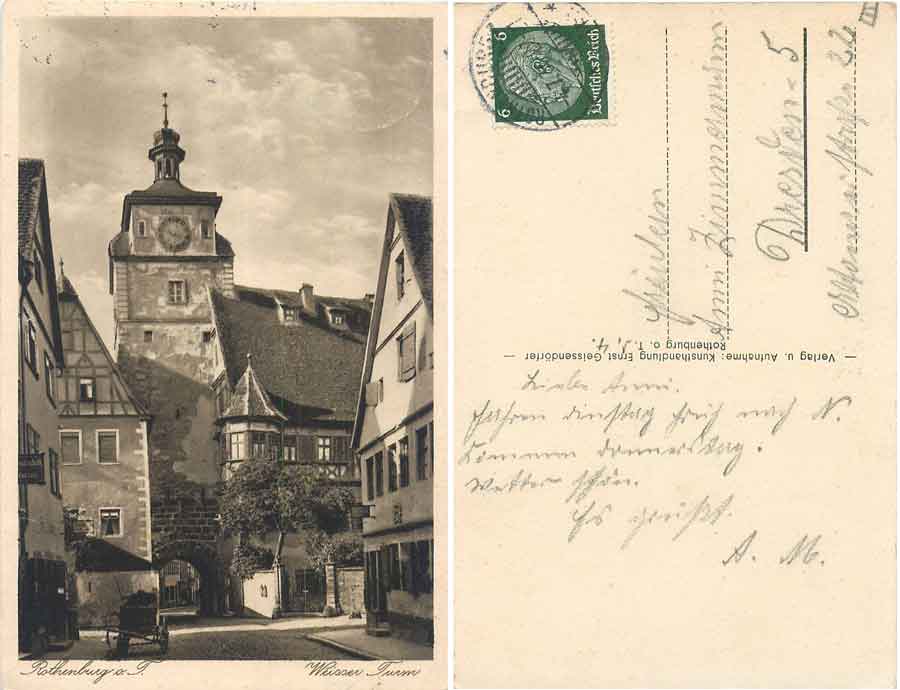 Rothenburg o. T.
Weisser Turm
6
6
Deutsches Reich
Fräulein
Anni Zimmermann
Dresden - 5
III
— Verlag u. Aufnahme: Kunsthandlung Ernst Geissendörfer —
Rothenburg o. T.
Liebe Anni.
fahren dienstag früh nach N.
kommen donnerstag.
Wetter schön.
Es grüßt.
A. M.